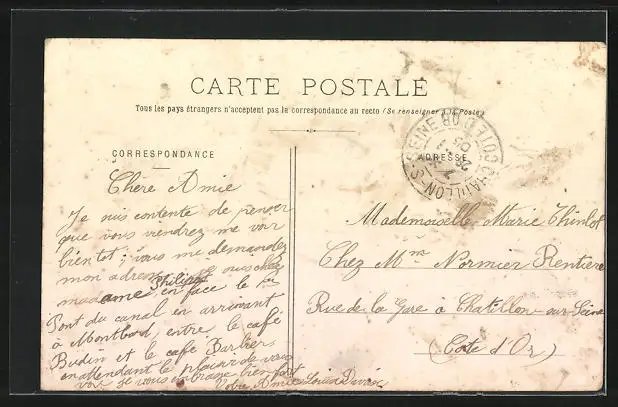 CARTE POSTALE
Tous les pays étrangers n'acceptent pas la correspondance au recto (Se renseigner à la Poste)
CORRESPONDANCE
Chère Amie
Je suis contente de penser
que vous viendrez me voir
bientôt; vous me demandez
mon adresse je suis chez
madame Philippe en face le
Pont du canal en arrivant
à Montbard, entre le café
Budin et le café Barbier
en attendant le plaisir de vous
voir je vous embrasse bien fort
Votre Amie Louise
ADRESSE
CHATILLON-S-SEINE COTE D'OR
7 26 05
Mademoiselle Marie Thinlot
Chez Mme Normier Rentière
Rue de la Gare à Chatillon-sur-Seine
(Côte d'Or)